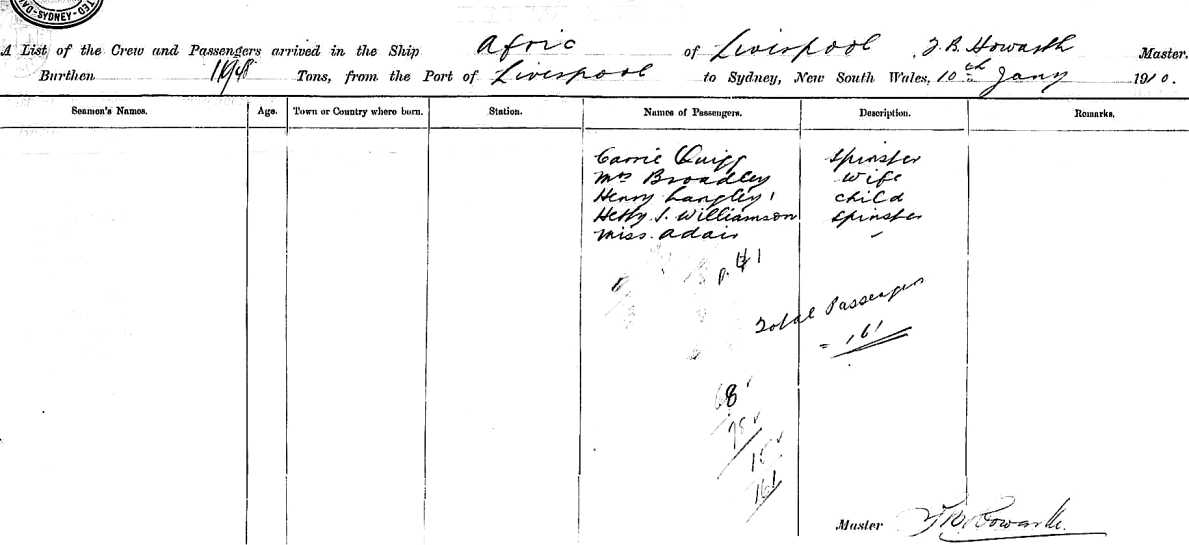 SYDNEY
A List of the Crew and Passengers arrived in the Ship Afric of Liverpool J. B. Howarth Master.
Burthen 11948 Tons, from the Port of Liverpool to Sydney, New South Wales, 10th Jany 1910.
Seamen's Names. Age. Town or Country where born. Station. Names of Passengers. Description. Remarks.
Carrie Quigg Spinster
Mrs Broadley Wife
Henry Langley Child
Hetty J. Williamson Spinster
Miss Adair
Total Passengers
= 161
68
15
161
Master